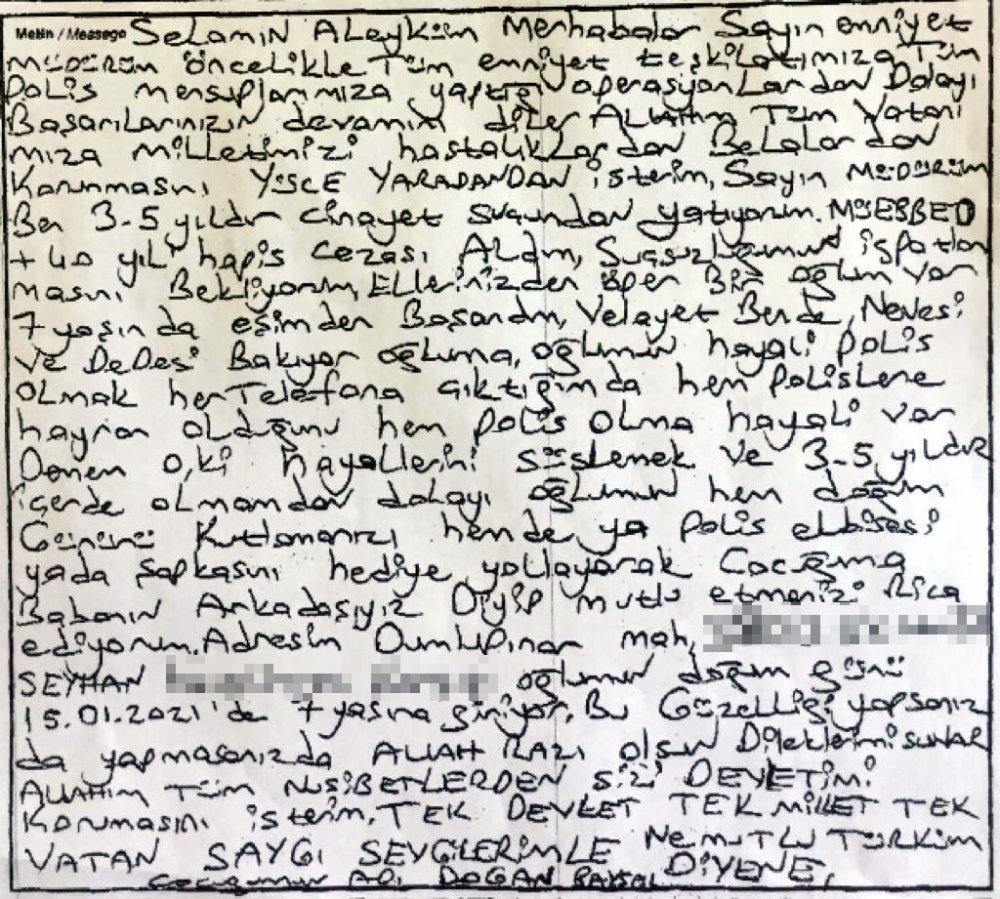 Metin / Message Selamın Aleyküm Merhabalar Sayın emniyet
müdürüm öncelikle Tüm emniyet teşkilatımıza Tüm
Polis mensuplarımıza yaptığı operasyonlardan Dolayı
Başarılarınızın devamını diler ALLAHIM Tüm Vatanı
mıza milletimizi hastalıklardan Belalardan
Korunmasını YÜCE YARADANDAN isterim, Sayın MÜDÜRÜM
Ben 3-5 yıldır cinayet suçundan yatıyorum. MÜEBBED
+ 40 yıl hapis cezası Aldım, Suçsuzluğumun ispatlan
masını Bekliyorum, Ellerinizden öper Bir oğlum var
7 yaşında eşimden Boşandım, Velayet Bende, Nenesi
ve Dedesi Bakıyor oğluma, oğlumun hayali polis
olmak her Telefona çıktığımda hem polislere
hayran olduğunu hem polis olma hayali var
Onun ki hayallerini süslemek ve 3-5 yıldır
içerde olmamdan dolayı oğlumun hem doğum
Gününü Kutlamanızı hemde ya polis elbisesi
yada şapkasını hediye yollayarak Çocuğuma
Babanın Arkadaşıyız Diyip mutlu etmenizi Rica
ediyorum. Adresim Dumlupınar mah,
SEYHAN oğlumun doğum günü
15.01.2021'de 7 yaşına giriyor. Bu Güzelliği yapsanız
da yapmasanızda ALLAH RAZI olsun Dileklerimi sunar
ALLAHIM TÜM MUSİBETLERDEN sizi DEVLETİMİ
Korumasını isterim. TEK DEVLET TEK MİLLET TEK
VATAN SAYGI SEVGİLERİMLE Ne MUTLU TÜRKÜM
DİYENE,
Çocuğumun ADI DOĞAN BAYSAL